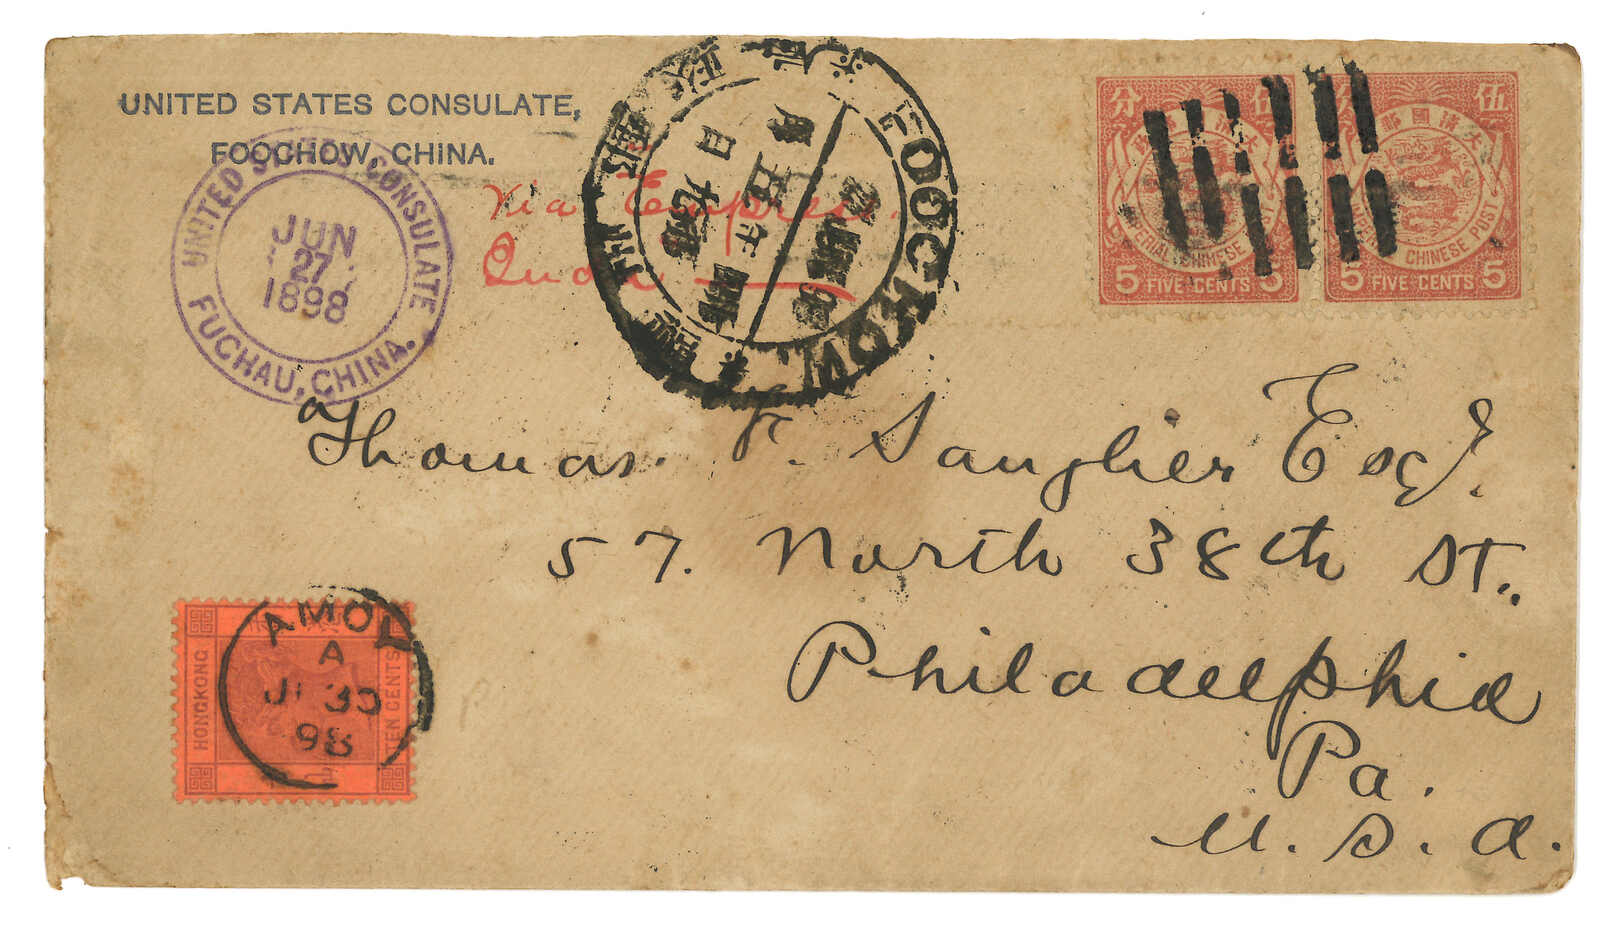 UNITED STATES CONSULATE,
FOOCHOW, CHINA.
UNITED STATES CONSULATE
JUN
27
1898
FUCHAU, CHINA.
Via Empress
FOOCHOW
日 九
大清國郵政
伍 分
IMPERIAL CHINESE POST
5 FIVE CENTS 5
大清國郵政
伍 分
IMPERIAL CHINESE POST
5 FIVE CENTS 5
Thomas F. Sauglier Esq.
57. North 38th St.,
Philadelphia
Pa.
U. S. A.
HONGKONG
TEN CENTS
AMOY
A
30
98